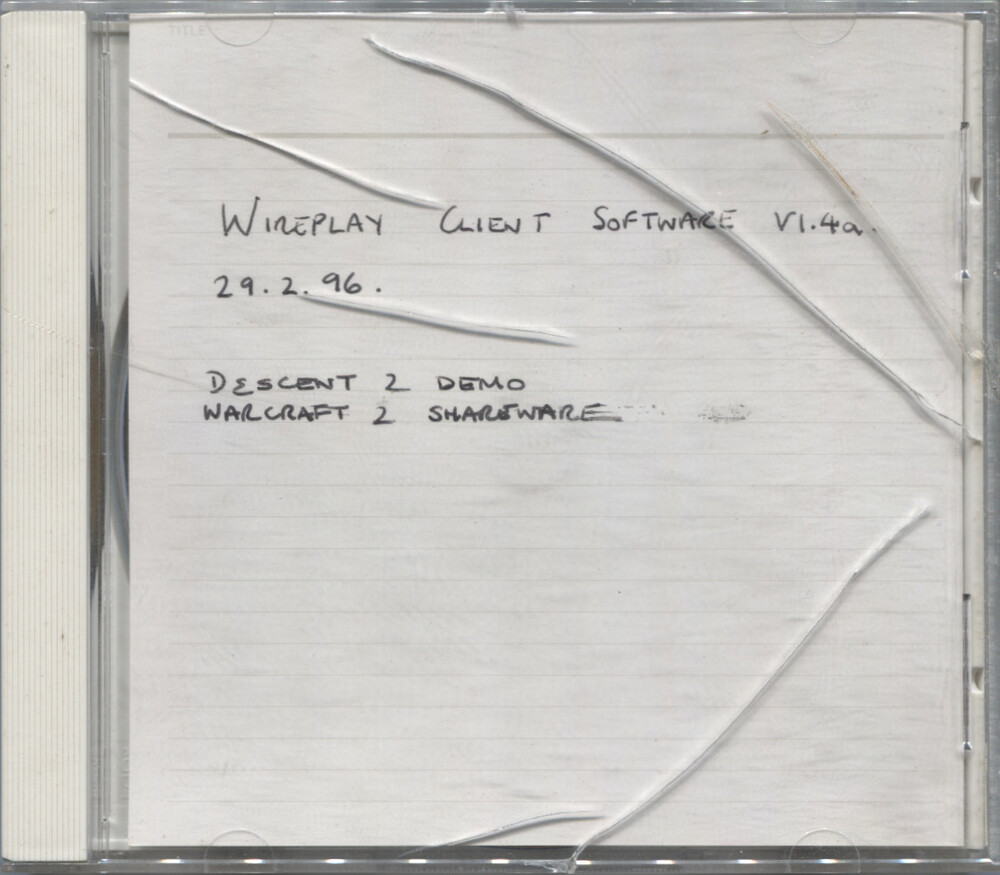 TITLE
WIREPLAY CLIENT SOFTWARE V1.4a.
29.2.96.
DESCENT 2 DEMO
WARCRAFT 2 SHAREWARE